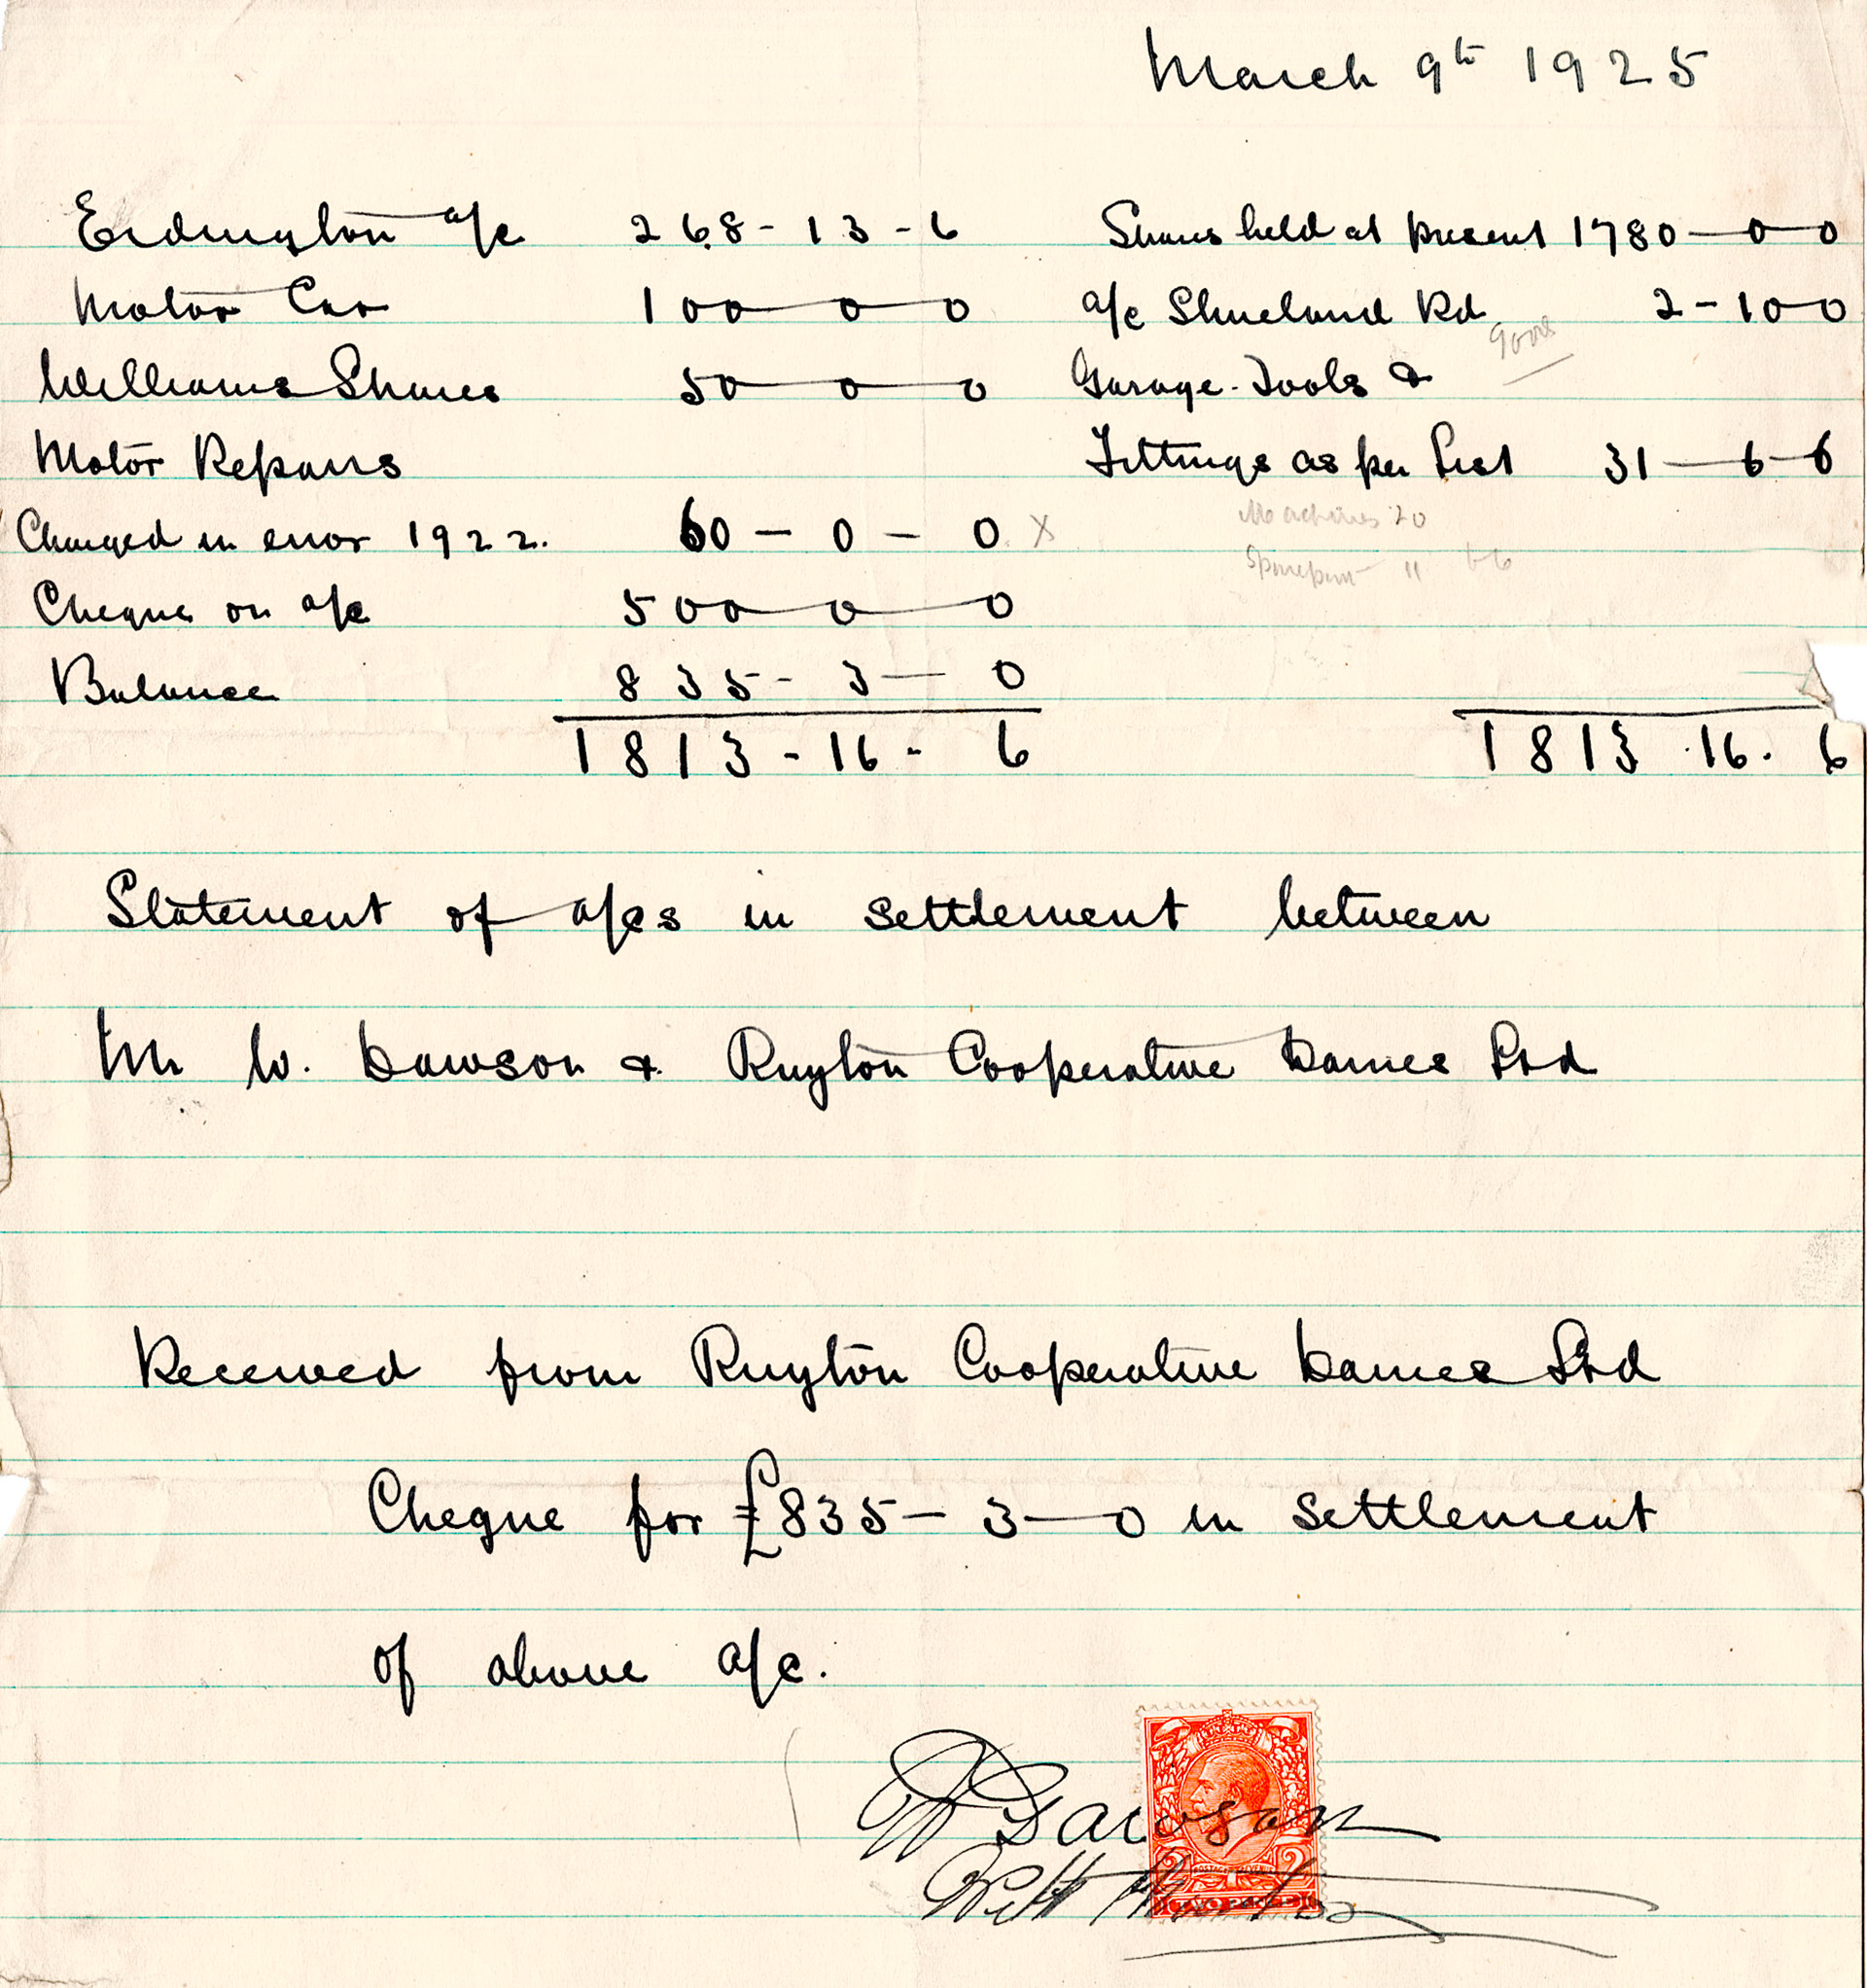 March 9th 1925
Erdington a/c 268-13-6 Shares held at present 1780-0-0
Motor Car 100-0-0 a/c Shireland Rd 2-10-0
Williams Shares 50-0-0 Garage Tools &
Motor Repairs Fittings as per List 31-6-6
Charged in error 1922. 60-0-0 X Machines 20
Cheque on a/c 500-0-0
Balance 835-3-0
1813-16-6 1813.16.6
Statement of a/cs in settlement between
Mr W. Dawson & Ruyton Cooperative Dairies Ltd
Received from Ruyton Cooperative Dairies Ltd
Cheque for £835-3-0 in settlement
of above a/c.
W Dawson
2 POSTAGE REVENUE 2
TWO PENCE